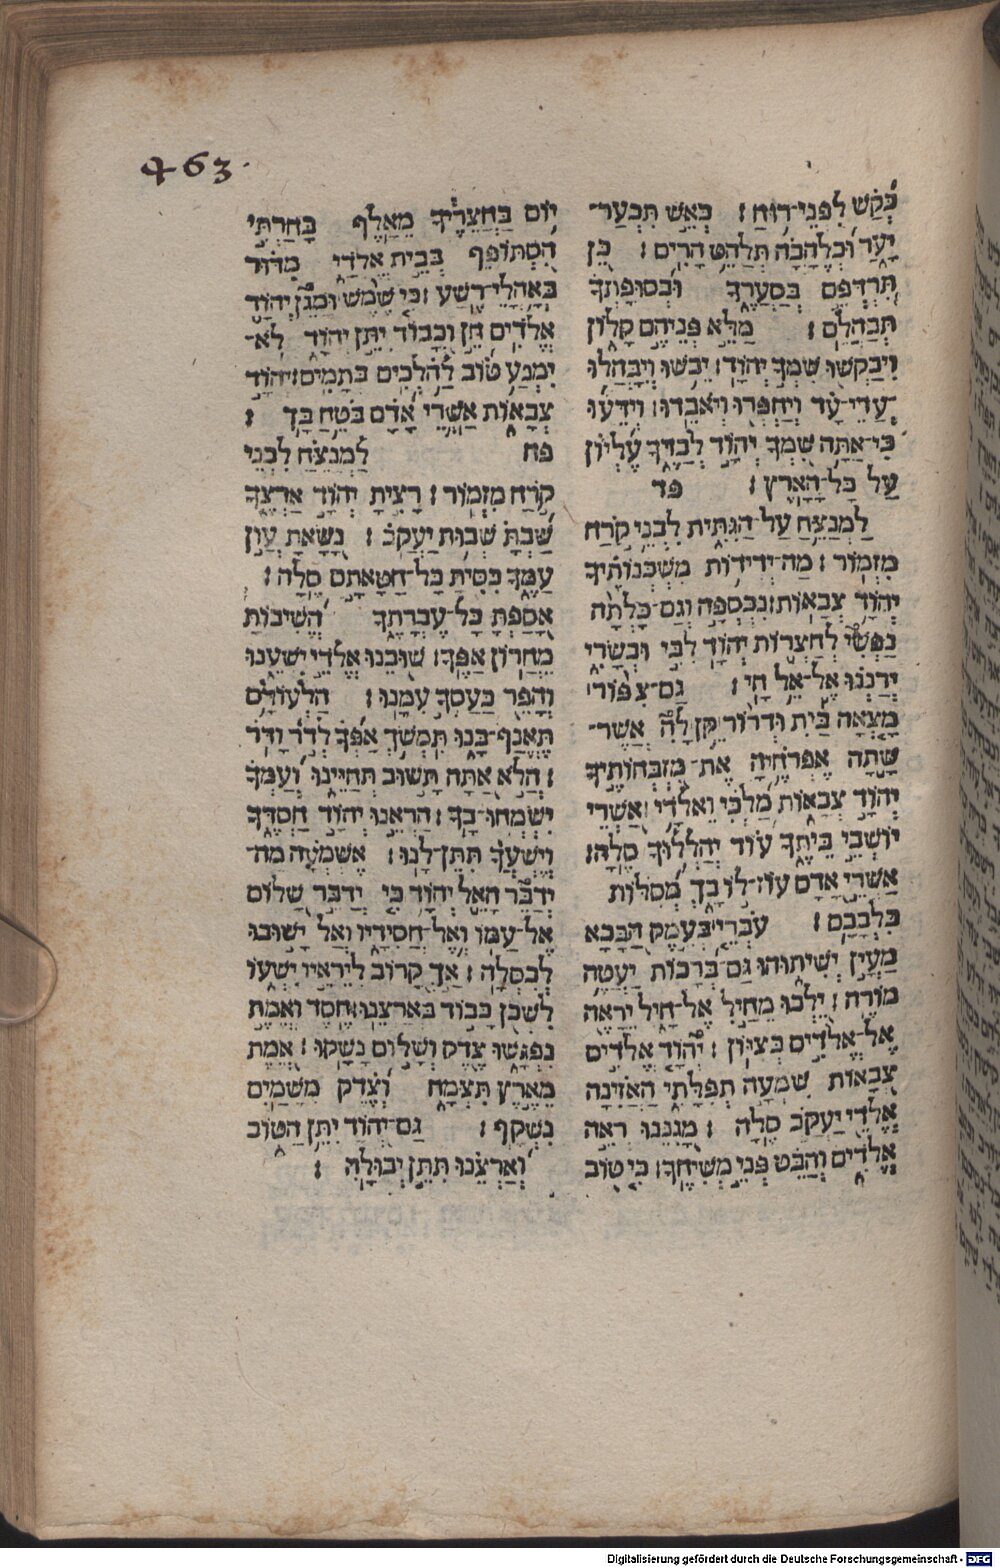 463.
כְּקַשׁ לִפְנֵי־רוּחַ׃ כְּאֵשׁ תִּבְעַר־
יָעַר וּכְלֶהָבָה תְּלַהֵט הָרִים׃ כֵּן
תִּרְדְּפֵם בְּסַעֲרֶךָ וּבְסוּפָתְךָ
תְבַהֲלֵם׃ מַלֵּא פְנֵיהֶם קָלוֹן
וִיבַקְשׁוּ שִׁמְךָ יְהוָֹד׃ יֵבֹשׁוּ וְיִבָּהֲלוּ
עֲדֵי־עַד וְיַחְפְּרוּ וְיֹאבֵדוּ׃ וְיֵדְעוּ
כִּי־אַתָּה שִׁמְךָ יְהוָֹד לְבַדֶּךָ עֶלְיוֹן
עַל כָּל־הָאָרֶץ׃ פד
לַמְנַצֵּחַ עַל־הַגִּתִּית לִבְנֵי קֹרַח
מִזְמוֹר׃ מַה־יְדִידוֹת מִשְׁכְּנוֹתֶיךָ
יְהוָֹד צְבָאוֹת׃ נִכְסְפָה וְגַם־כָּלְתָה
נַפְשִׁי לְחַצְרוֹת יְהוָֹד לִבִּי וּבְשָׂרִי
יְרַנְּנוּ אֶל־אֵל חָי׃ גַּם־צִפּוֹר
מָצְאָה בַיִת וּדְרוֹר קֵן לָהּ אֲשֶׁר־
שָׁתָה אֶפְרֹחֶיהָ אֶת־מִזְבְּחוֹתֶיךָ
יְהוָֹד צְבָאוֹת מַלְכִּי וֵאלֹדָי׃ אַשְׁרֵי
יוֹשְׁבֵי בֵיתֶךָ עוֹד יְהַלְלוּךָ סֶּלָה׃
אַשְׁרֵי אָדָם עוֹז־לוֹ בָךְ מְסִלּוֹת
בִּלְבָבָם׃ עֹבְרֵי בְּעֵמֶק הַבָּכָא
מַעְיָן יְשִׁיתוּהוּ גַּם־בְּרָכוֹת יַעְטֶה
מוֹרֶה׃ יֵלְכוּ מֵחַיִל אֶל־חָיִל יֵרָאֶה
אֶל־אֱלֹדִים בְּצִיּוֹן׃ יְהוָֹד אֱלֹדִים
צְבָאוֹת שִׁמְעָה תְפִלָּתִי הַאֲזִינָה
אֱלֹדֵי יַעֲקֹב סֶלָה׃ מָגִנֵּנוּ רְאֵה
אֱלֹדִים וְהַבֵּט פְּנֵי מְשִׁיחֶךָ׃ כִּי טוֹב
יוֹם בַּחֲצֵרֶיךָ מֵאָלֶף בָּחַרְתִּי
הִסְתּוֹפֵף בְּבֵית אֱלֹדַי מִדּוּר
בְּאָהֳלֵי־רֶשַׁע׃ כִּי שֶׁמֶשׁ וּמָגֵן יְהוָֹד
אֱלֹדִים חֵן וְכָבוֹד יִתֵּן יְהוָֹד לֹא־
יִמְנַע טוֹב לַהֹלְכִים בְּתָמִים׃ יְהוָֹד
צְבָאוֹת אַשְׁרֵי אָדָם בֹּטֵחַ בָּךְ׃
פח לַמְנַצֵּחַ לִבְנֵי
קֹרַח מִזְמוֹר׃ רָצִיתָ יְהוָֹד אַרְצֶךָ
שַׁבְתָּ שְׁבוּת יַעֲקֹב׃ נָשָׂאתָ עֲוֹן
עַמֶּךָ כִּסִּיתָ כָל־חַטָּאתָם סֶלָה׃
אָסַפְתָּ כָל־עֶבְרָתֶךָ הֱשִׁיבוֹתָ
מֵחֲרוֹן אַפֶּךָ׃ שׁוּבֵנוּ אֱלֹדֵי יִשְׁעֵנוּ
וְהָפֵר כַּעַסְךָ עִמָּנוּ׃ הַלְעוֹלָם
תֶּאֱנַף־בָּנוּ תִּמְשֹׁךְ אַפְּךָ לְדֹר וָדֹר
׃ הֲלֹא אַתָּה תָּשׁוּב תְּחַיֵּינוּ וְעַמְּךָ
יִשְׂמְחוּ־בָךְ׃ הַרְאֵנוּ יְהוָֹד חַסְדֶּךָ
וְיֶשְׁעֲךָ תִּתֶּן־לָנוּ׃ אֶשְׁמְעָה מַה־
יְדַבֵּר הָאֵל יְהוָֹד כִּי יְדַבֵּר שָׁלוֹם
אֶל־עַמּוֹ וְאֶל־חֲסִידָיו וְאַל־יָשׁוּבוּ
לְכִסְלָה׃ אַךְ קָרוֹב לִירֵאָיו יִשְׁעוֹ
לִשְׁכֹּן כָּבוֹד בְּאַרְצֵנוּ׃ חֶסֶד וֶאֱמֶת
נִפְגָּשׁוּ צֶדֶק וְשָׁלוֹם נָשָׁקוּ׃ אֱמֶת
מֵאֶרֶץ תִּצְמָח וְצֶדֶק מִשָּׁמַיִם
נִשְׁקָף׃ גַּם־יְהוָֹד יִתֵּן הַטּוֹב
וְאַרְצֵנוּ תִּתֵּן יְבוּלָהּ׃
Digitalisierung gefördert durch die Deutsche Forschungsgemeinschaft - DFG